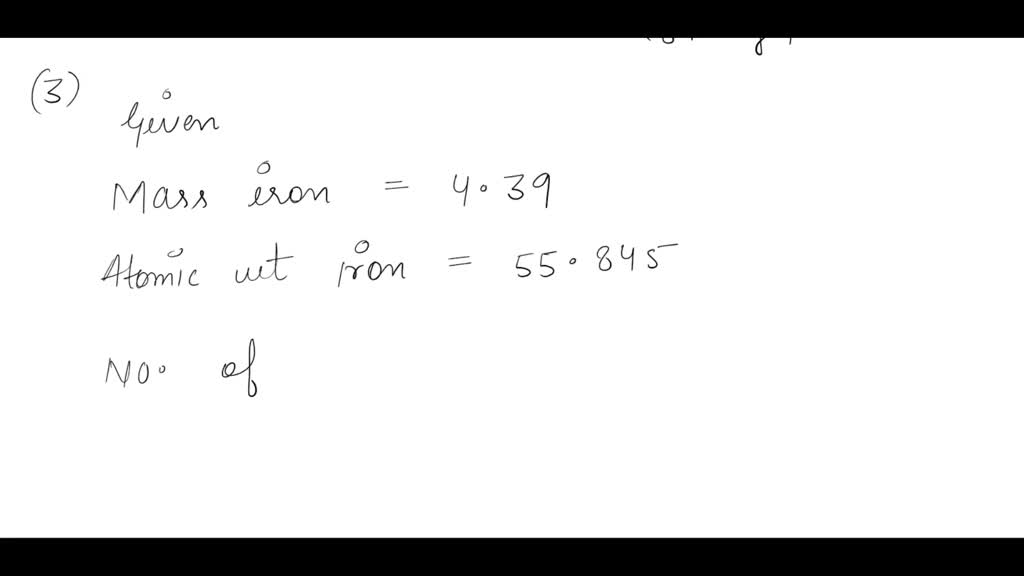 (3)
Given
Mass iron = 4.39
Atomic wt iron = 55.845
No. of